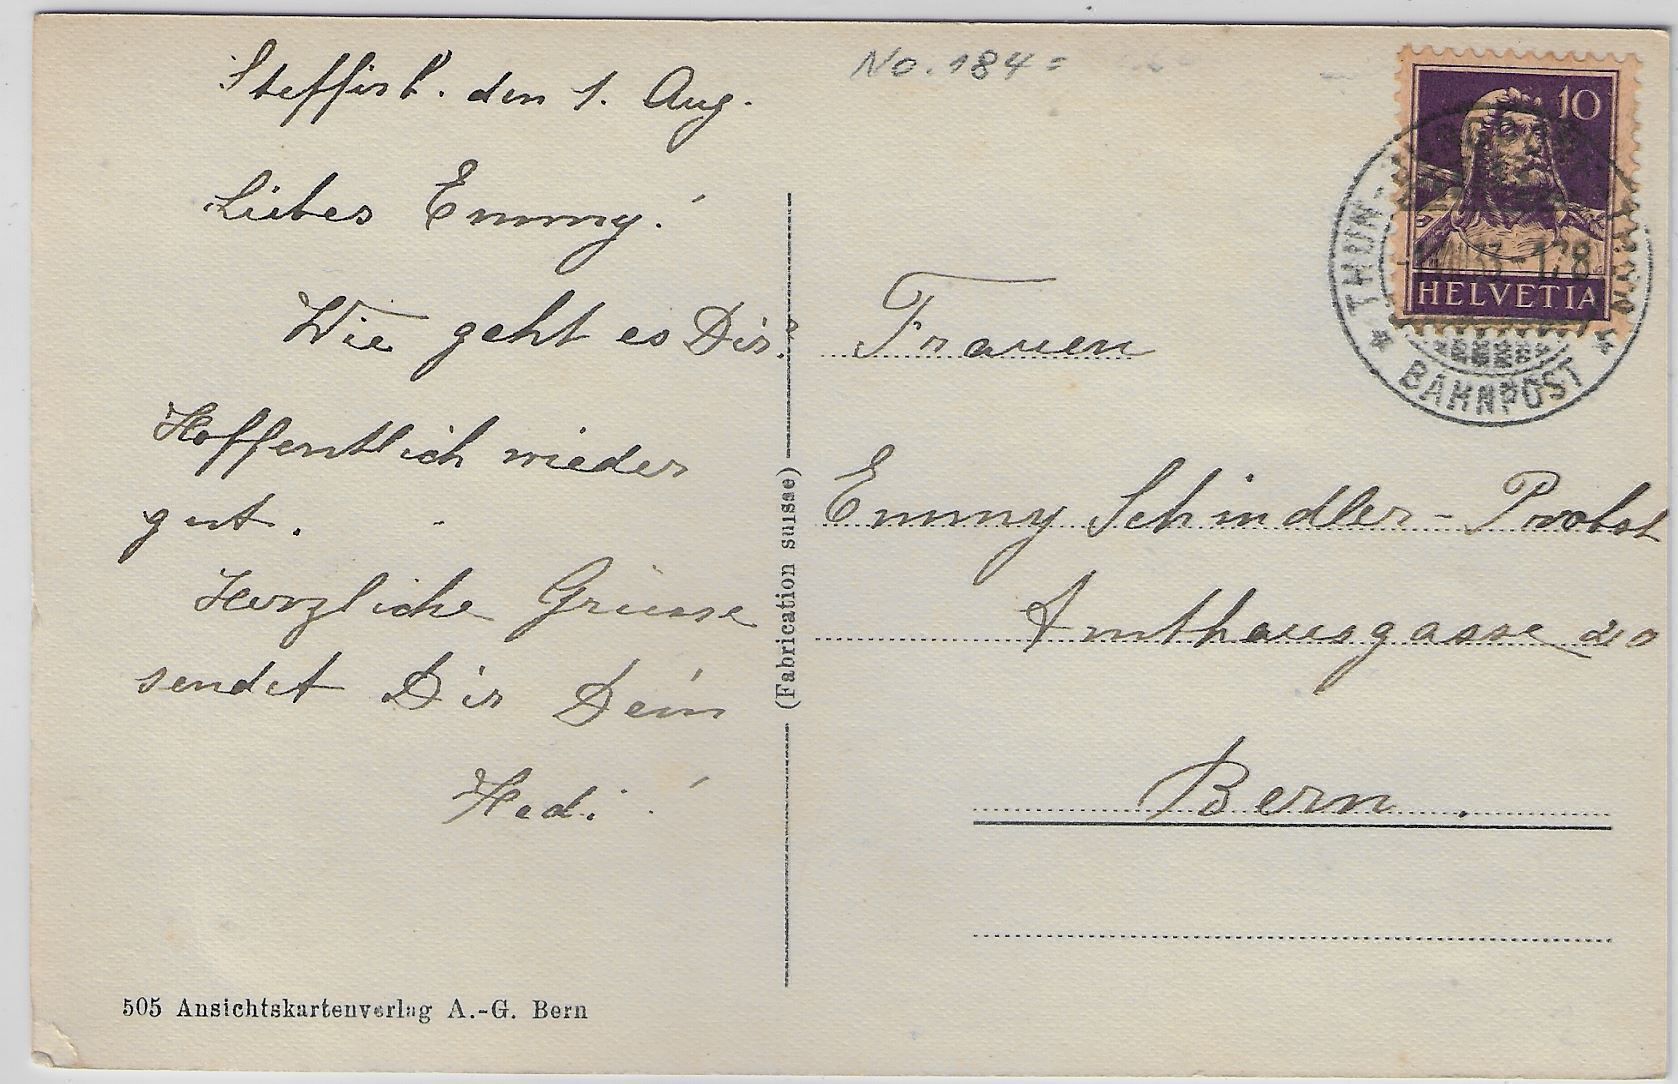 Steffisb. den 1. Aug.
Liebes Emmy!
Wie geht es Dir?
Hoffentlich wieder
gut.
Herzliche Grüsse
sendet Dir Dein
Hedi!
505 Ansichtskartenverlag A.-G. Bern
(Fabrication suisse)
No. 184=
10
HELVETIA
THUN-
BAHNPOST
Frauen
Emmy Schindler-Probst
Amthausgasse 20
Bern.